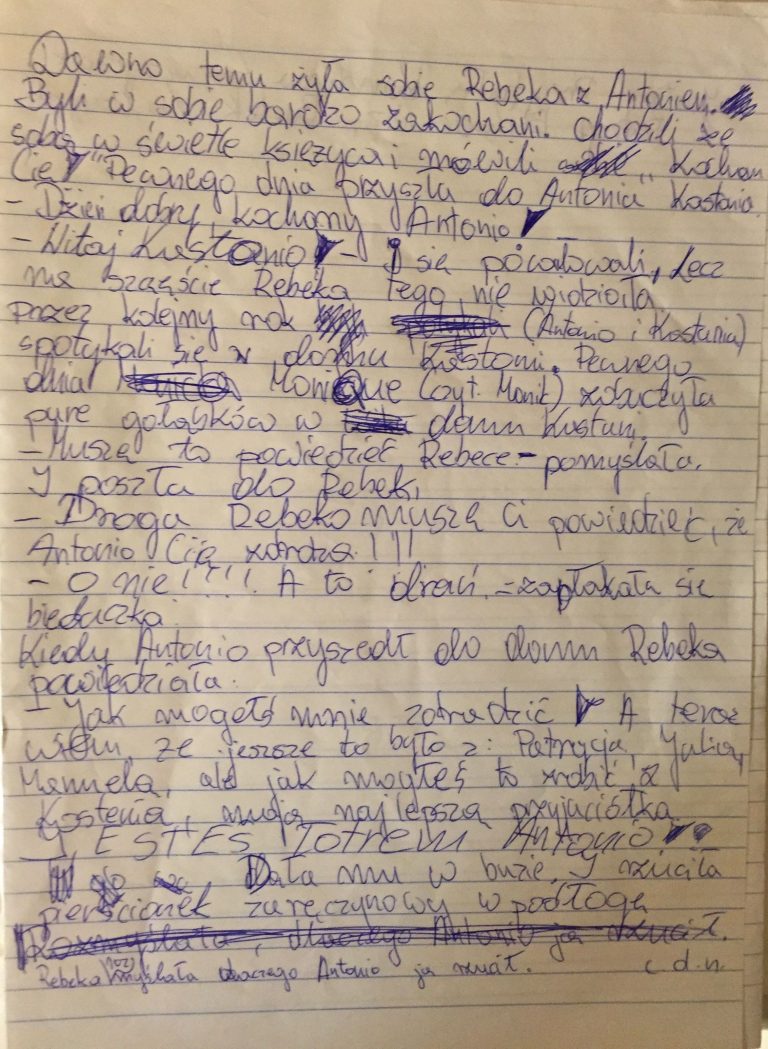 Dawno temu żyła sobie Rebeka z Antoniem.
Byli w sobie bardzo zakochani. Chodzili ze
sobą w świetle księżyca i mówili „Kocham
Cię!" Pewnego dnia przyszła do Antonia Kastania.
- Dzień dobry, kochany Antonio!
- Witaj Kastanio! - I się pocałowali, Lecz
na szczęście Rebeka tego nie widziała
przez kolejny rok (Antonio i Kastania)
spotykali się w domku Kastani. Pewnego
dnia Monique (czyt. Monik) zobaczyła
parę gołąbków w domu Kastani.
- Muszę to powiedzieć Rebece - pomyślała.
I poszła do Rebeki
- Droga Rebeko muszę Ci powiedzieć, że
Antonio Cię zdradza!!!!
- O nie!!!!! A to drań. - zapłakała się
biedaczka.
Kiedy Antonio przyszedł do domu Rebeka
powiedziała:
- Jak mogłeś mnie zdradzić! A teraz
wiem, że jeszsze to było z: Patrycja, Julia,
Manuela, ale jak mogłeś to zrobić z
Kastenią, moją najlepszą przyjaciółką
JESTEŚ ŁOTREM ANTONIO!
Dała mu w buzię. I rzuciła
pierścionek zaręczynowy w podłogę
Rebeka rozmyślała dlaczego Antonio ją rzucił. c.d.n.